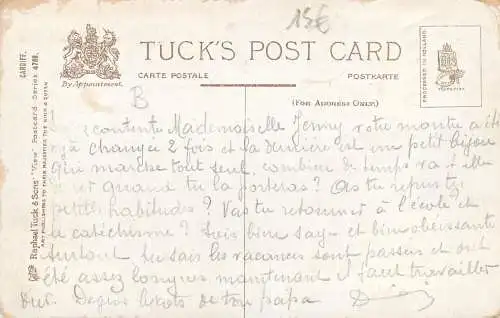 15€
TUCK'S POST CARD
CARTE POSTALE
POSTKARTE
By Appointment.
(FOR ADDRESS ONLY.)
PROCESSED IN HOLLAND
CARDIFF.
Raphael Tuck & Sons "View" Postcard Series 4788.
ART PUBLISHERS TO THEIR MAJESTIES THE KING & QUEEN
B
contente Mademoiselle Jenny votre montre a été
à changée 2 fois et la dernière est un petit bijou
qui marche tout seul, combien de temps va t elle
et quand tu la porteras? As tu repris tes
petites habitudes? Vas tu retourner à l'école et
au catéchisme? Sois bien sage et bien obéissante
surtout tu sais les vacances sont passées et ont
été assez longues maintenant il faut travailler
dur. de ton papa